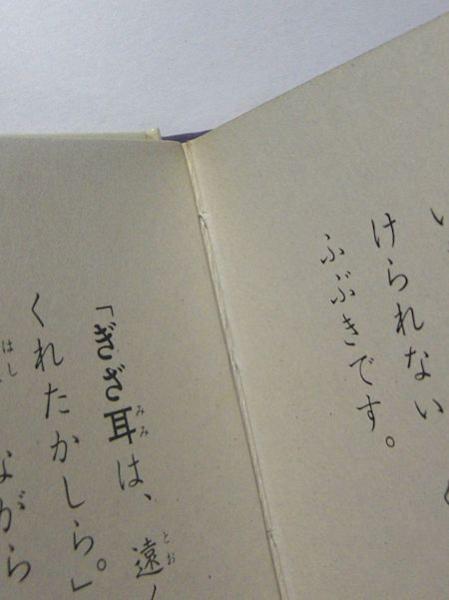 けられない
ふぶきです。
「ぎざ耳は、遠
くれたかしら。」
ながら